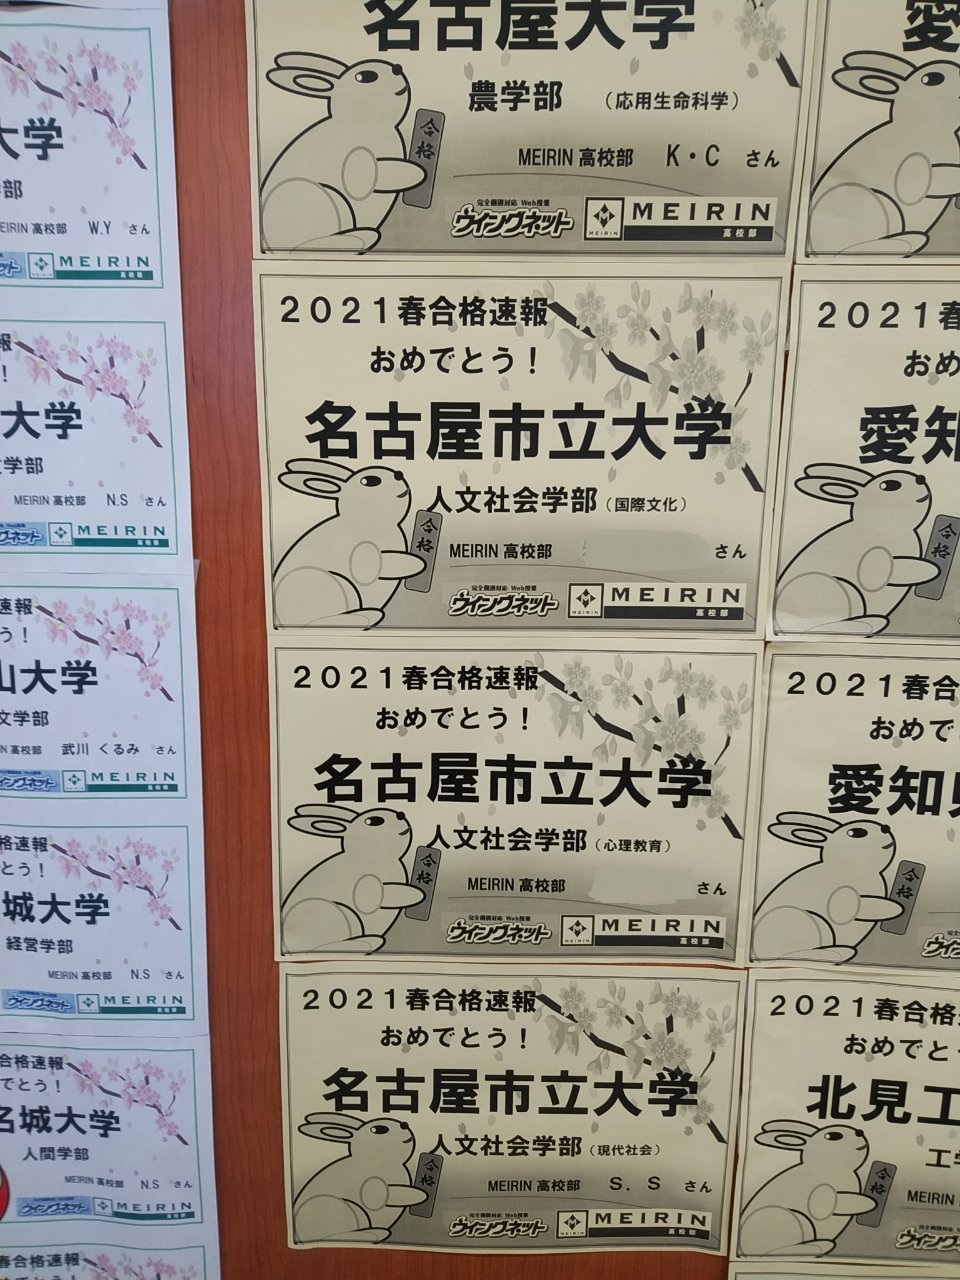 大学
部
MEIRIN 高校部 W.Y さん
MEIRIN
高校部
報
！
大学
学部
MEIRIN 高校部 N.S さん
ングネット
MEIRIN
高校部
速報
う！
山大学
文学部
高校部 武川 くるみ さん
イングネット
MEIRIN
高校部
格速報
とう！
城大学
経営学部
MEIRIN 高校部 N.S さん
ウイングネット
MEIRIN
高校部
合格速報
でとう！
名城大学
人間学部
MEIRIN 高校部 N.S さん
ウイングネット
MEIRIN
高校部
春合格速報
めでとう！
名古屋大学
農学部 （応用生命科学）
合格
MEIRIN 高校部 K・C さん
完全個別対応 Web授業
ウイングネット
MEIRIN
高校部
2021春合格速報
おめでとう！
名古屋市立大学
人文社会学部（国際文化）
合格
MEIRIN 高校部 さん
完全個別対応 Web授業
ウイングネット
MEIRIN
高校部
2021春合格速報
おめでとう！
名古屋市立大学
人文社会学部（心理教育）
合格
MEIRIN 高校部 さん
完全個別対応 Web授業
ウイングネット
MEIRIN
高校部
2021春合格速報
おめでとう！
名古屋市立大学
人文社会学部（現代社会）
合格
MEIRIN 高校部 S．S さん
完全個別対応 Web授業
ウイングネット
MEIRIN
高校部
愛
2021春
おめ
愛知
合格
2021春合
おめで
愛知県
合格
2021春合格
おめでと
北見工
工学
合格
MEIRIN
ウイング